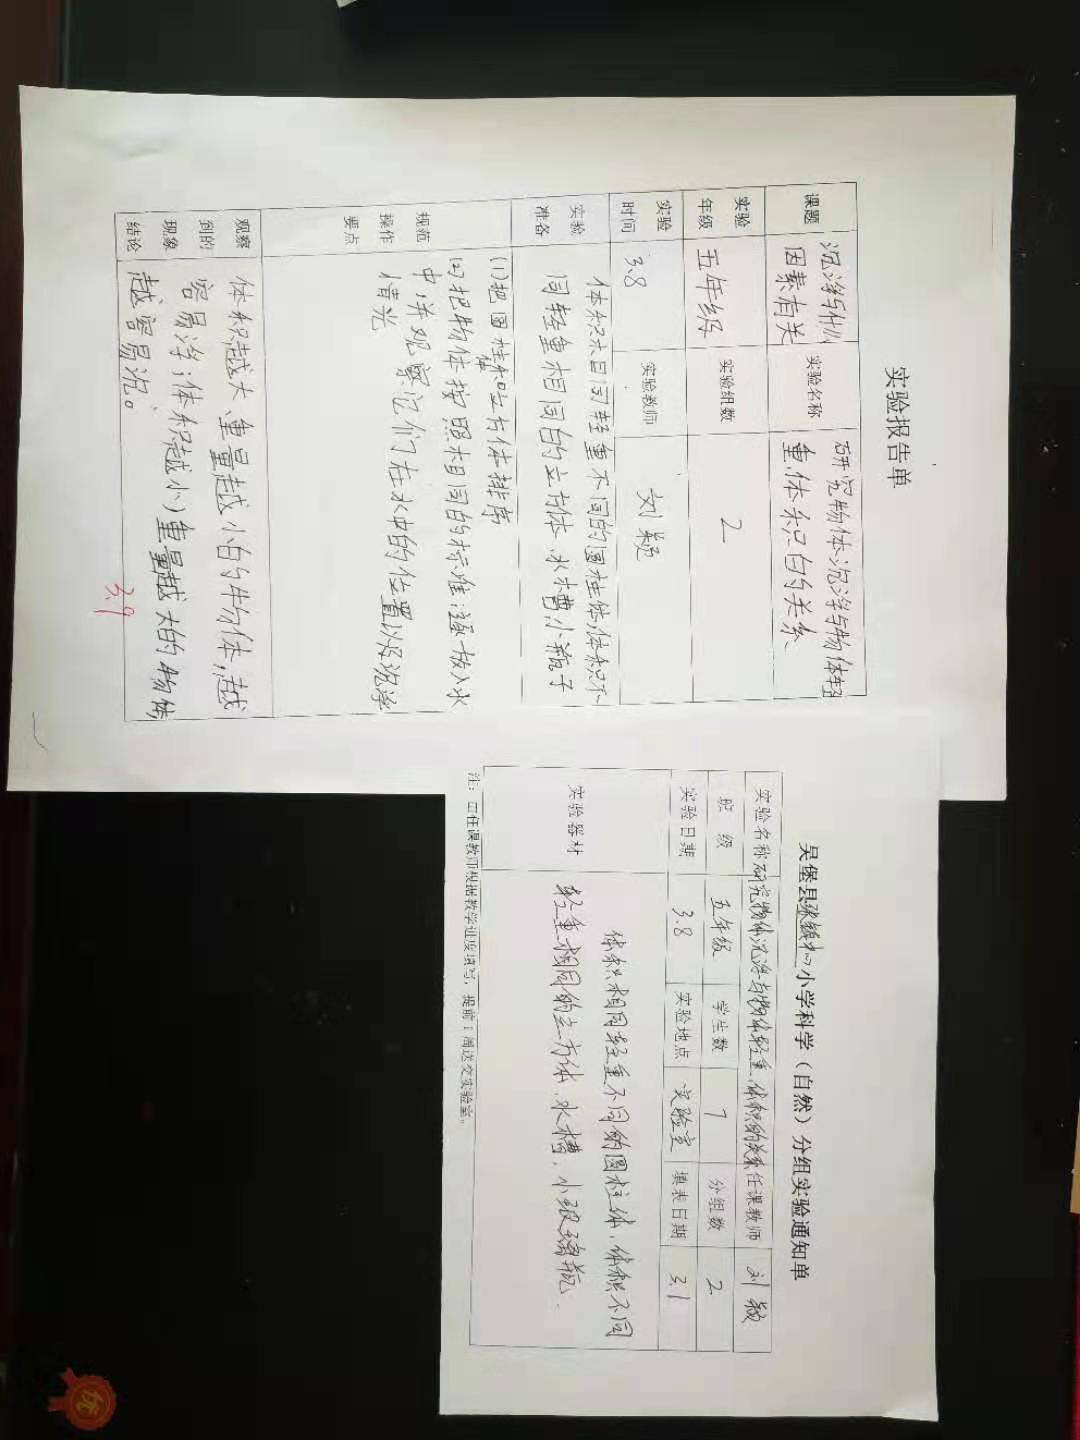 实验报告单
课题
沉浮与什么
因素有关
实验名称
研究物体沉浮与物体轻
重、体积的关系
实验
年级
五年级
实验组数
2
实验
时间
3.8
实验教师
刘颖
实验
准备
体积相同轻重不同的圆柱体,体积不
同轻重相同的立方体、水槽、小瓶子
规范
操作
要点
(1)把圆柱体和立方体排序
(2)把物体按照相同的标准逐一放入水
中,并观察记们在水中的位置以及沉浮
情况
观察
到的
现象
结论
体积越大、重量越小的物体,越
容易浮;体积越小,重量越大的物体
越容易沉。
3.9
吴堡县张家山小学科学（自然）分组实验通知单
实验名称
研究物体沉浮与物体轻重、体积的关系
任课教师
刘颖
班 级
五年级
学生数
7
分组数
2
实验日期
3.8
实验地点
实验室
填表日期
3.1
实验器材
体积相同轻重不同的圆柱体,体积不同
轻重相同的立方体、水槽、小玻璃瓶.
注：由任课教师根据教学进度填写，提前1周送交实验室。
优